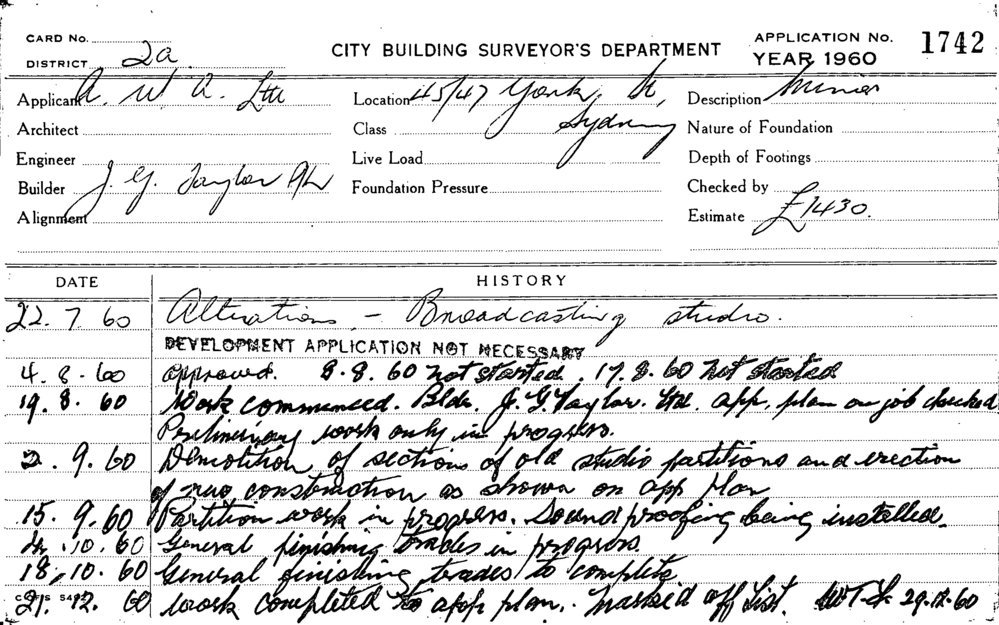 CARD No.
DISTRICT 2a
CITY BUILDING SURVEYOR'S DEPARTMENT
APPLICATION No. 1742
YEAR 1960
Applicant A. W. A. Ltd
Location 45/47 York St,
Sydney
Description Minor
Architect
Class
Nature of Foundation
Engineer
Live Load
Depth of Footings
Builder J. G. Taylor P/L
Foundation Pressure
Checked by
Alignment
Estimate £1430.
DATE HISTORY
22. 7. 60 Alterations - Broadcasting studio.
DEVELOPMENT APPLICATION NOT NECESSARY
4. 8. 60 approved. 8. 8. 60 not started. 17. 8. 60 not started
19. 8. 60 Work commenced. Bldr. J. G. Taylor. Ltd. app. plan on job checked
Preliminary work only in progress.
2. 9. 60 Demolition of sections of old studio partitions and erection
of new construction as shown on app plan
15. 9. 60 Partition work in progress. Sound proofing being installed.
4. 10. 60 General finishing trades in progress.
18. 10. 60 General finishing trades to complete
21. 12. 60 work completed to app plan. Marked off List. 29.12.60